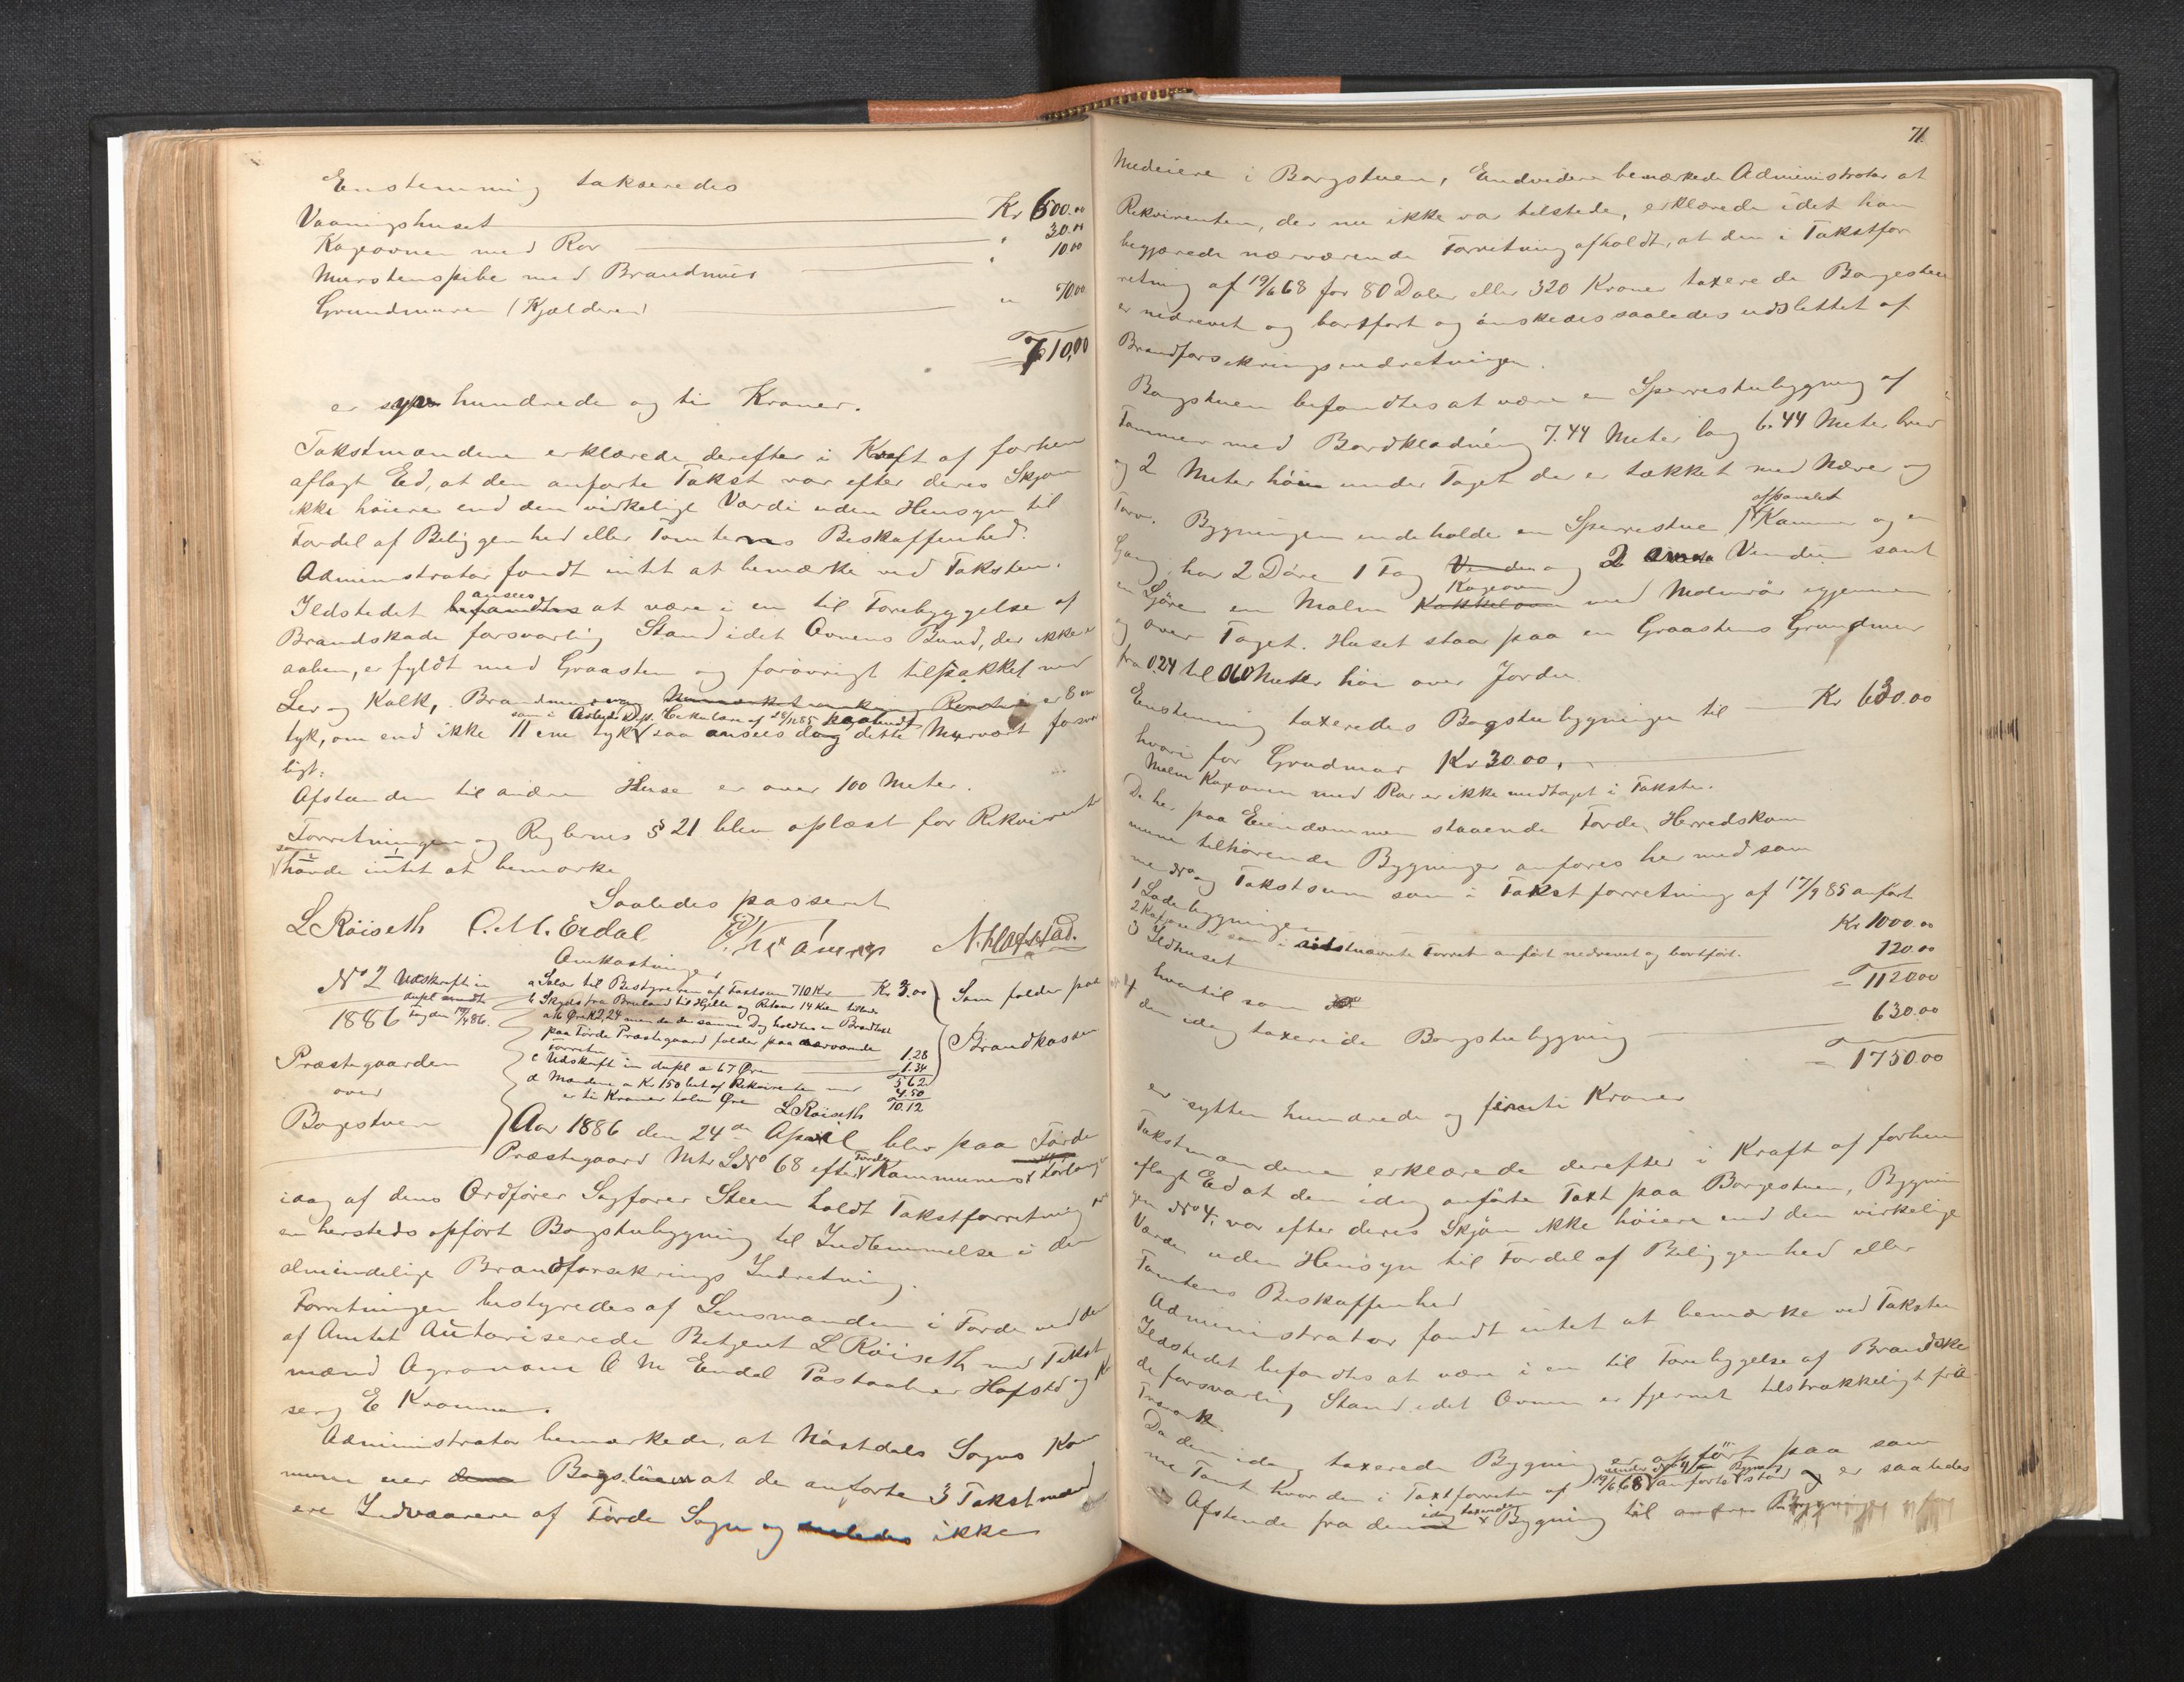 Enstemmig takseredes
Vaaningshuset Kr 600.00
Kogeovnen med Rør " 30.00
Murstenspibe med Brandmur " 10.00
Grundmuren (Kjælderen) " 70.00
= 710,00
er syv hundrede og ti Kroner.
Takstmændene erklærede derefter i Kraft af forhen
aflagt Ed, at den anførte Takst var efter deres Skjøn
ikke høiere end den virkelige Værdi uden Hensyn til
Fordel af Beliggenhed eller Tomtens Beskaffenhed.
Administrator fandt intet at bemærke ved Taksten.
Ildstedet ansees at være i en til Forebyggelse af
Brandskade forsvarlig Stand idet Ovnens Bund, der ikke er
aaben, er fyldt med Graasten og forøvrigt tilpakket med
Ler og Kalk, Brandmuren er 8 cm
tyk, om end ikke 11 cm tyk som i Arbeds Dep. Cirkulære af paabudt saa ansees dog dette Murværk forsvar
ligt.
Afstanden til andre Huse er over 100 Meter.
Forretningen og Reglernes § 21 blev oplæst for Rekvirenten
som havde intet at bemærke
Saaledes passeret
L Röiseth O. M. Erdal E Kramer N. Hafstad.
Omkostninger
No 2 Udskrift in dupl sendt
1886
a Salær til Bestyreren af Taxtsum 710 Kr Kr 3.00
b Skyds fra Bruland til Hjelle og Retour 14 Km tillands
a 16 Øre K 2,24 men da der samme Dag holdtes en Brandtaxt
paa Førde Præstegaard falder paa nærværende
Forretn 1.28
c Udskrift in dupl a 67 Øre 1.34
5.62
d Mændene a Kr 1.50 bet af Rekvirenten med 4.50
er ti Kroner tolv Øre 10.12
L Röiseth
Som falder paa
Brandkassen
Præstegaarden
over
Borgestuen
Aar 1886 den 24de April blev paa Førde
Præstegaard Mtr LNo 68 efter Førde Kommunes Forlangende
idag af dens Ordfører Sagfører Steen holdt Takstforretning over
en hersteds opført Borgstubygning til Indlemmelse i den
almindelige Brandforsikrings Indretning.
Forretningen bestyredes af Lensmanden i Førde ved den
af Amtet Autoriserede Betjent L Röiseth med Takst
mænd Agronom O M Erdal Postaabner Hafstad og
E Kramer.
Administrator bemærkede, at Naustdals Sogns Kom
mune eier Borgstuen at de anførte 3 Takstmænd
ere Indvaanere af Førde Sogn og ikke
71
Medeiere i Borgstuen, Endvidere bemærkede Administrator at
Rekvirenten, der nu ikke var tilstede, erklærede idet han
begjærede nærværende Forretning afholdt, at den i Takstfor
retning af 19/6 68 for 80 Daler eller 320 Kroner taxerede Borgestue
er nedrevet og bortført og ønskedes saaledes udslettet af
Brandforsikringsindretningen.
Borgstuen befandtes at være en Sperrestubygning af
Tømmer med Bordklædning 7.44 Meter lang 6.44 Meter bred
og 2 Meter høi under Taget der er tækket med Næver og
Torv. Bygningen indeholder en Sperrestue 1 afpanelet Kammer og en
Gang, har 2 Døre 1 Fag og 2 Vinduer samt
en Malm Kogeovn med Malmrør igjennem
og over Taget. Huset staar paa en Graastens Grundmur
fra 0.24 til 0.60 Meter høi over Jorden
Enstemmig taxeredes Borgstubygningen til Kr 630.00
hvori for Grundmur Kr 30.00.
Malm Kogeovnen med Rør er ikke medtaget i Taksten.
De her paa Eiendommen staaende Førde Herredskom
mune tilhørende Bygninger anføres her med sam
me No og Takstsum som i Takstforretning af 17/9 85 anført
1 Ladebygningen Kr 1000.00
2 som i sidstnævnte Forretn anført nedrevet og bortført.
3 Ildhuset 120.00
= 1120.00
hvortil som No 4
den idag taxerede Borgstubygning 630.00
= 1750.00
er sytten hundrede og femti Kroner
Takstmændene erklærede derefter i Kraft af forhen
aflagt Ed at den idag anførte Taxt paa Borgestuen, Bygnin
gen No 4, var efter deres Skjøn ikke høiere end den virkelige
Værdi uden Hensyn til Fordel af Beliggenhed eller
Tomtens Beskaffenhed
Administrator fandt intet at bemærke ved Taksten
Ildstedet befandtes at være i en til Forebyggelse af Brandska
de forsvarlig Stand, idet Ovnen er fjernet tilstrækkeligt fra
Træværk.
Da den idag taxerede Bygning er opført paa sam
me Tomt hvor den i Taxtforretn af 19/6 68 under No 4 anførte Bygning stod og er saaledes
Afstande fra den idag taxerede Bygning til andre Bygninger